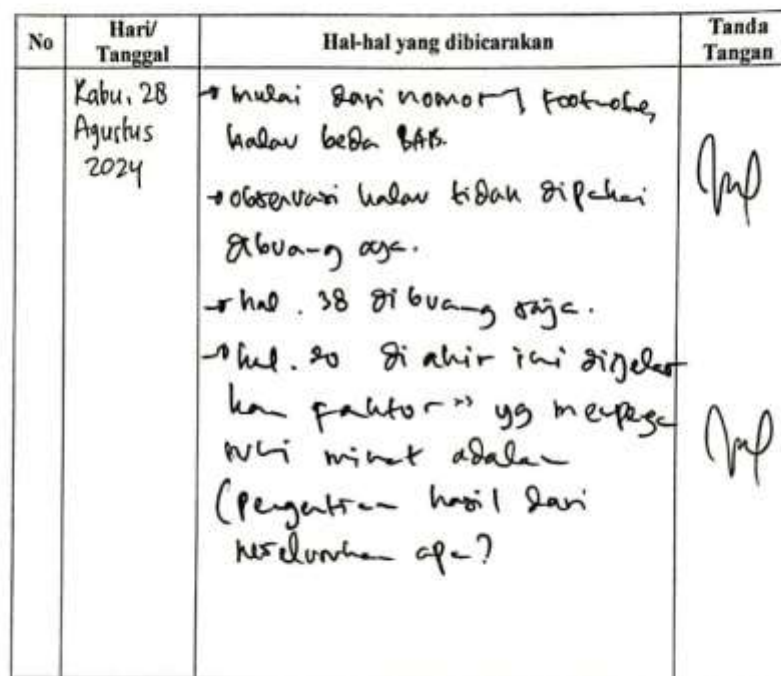 No
Hari/
Tanggal
Hal-hal yang dibicarakan
Tanda
Tangan
Rabu, 28
Agustus
2024
→ mulai dari nomor 1 footnote,
kalau beda BAB.
→ observasi kalau tidak dipakai
dibuang aja.
→ hal. 38 dibuang saja.
→ hal. 20 di akhir ini dijelas
kan faktor" yg mempenga
ruhi minat adalah
(pengertian hasil dari
keseluruhan apa?